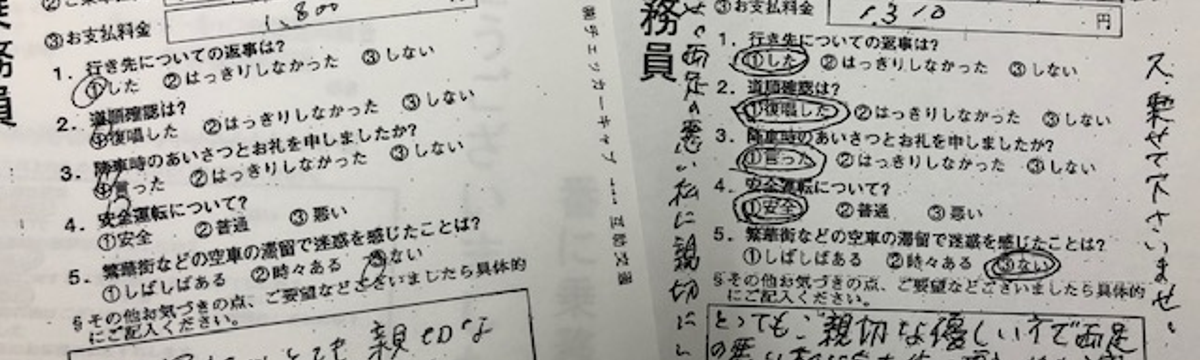 務員
③お支払料金
1,800
1. 行き先についての返事は?
①した ②はっきりしなかった ③しない
2. 道順確認は?
①復唱した ②はっきりしなかった ③しない
3. 降車時のあいさつとお礼を申しましたか?
①言った ②はっきりしなかった ③しない
4. 安全運転について?
①安全 ②普通 ③悪い
5. 繁華街などの空車の滞留で迷惑を感じたことは?
①しばしばある ②時々ある ③ない
§その他お気づきの点、ご要望などございましたら具体的
にご記入ください。
チェッカーキャブ
互助交通
務員
両足の悪い私に親切に
③お支払料金 1,310 円
1. 行き先についての返事は?
①した ②はっきりしなかった ③しない
2. 道順確認は?
①復唱した ②はっきりしなかった ③しない
3. 降車時のあいさつとお礼を申しましたか?
①言った ②はっきりしなかった ③しない
4. 安全運転について?
①安全 ②普通 ③悪い
5. 繁華街などの空車の滞留で迷惑を感じたことは?
①しばしばある ②時々ある ③ない
§その他お気づきの点、ご要望などございましたら具体的
にご記入ください。
とってもご親切な優しい方で両足
の悪い